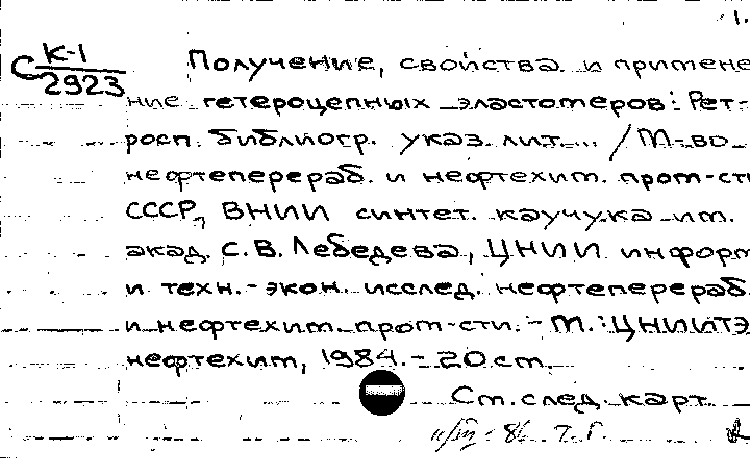 1.
С К-1
2923
Получение, свойства и примене
ние гетероцепных эластомеров: Рет-
росп. библиогр. указ. лит. ... / М-во
нефтеперераб. и нефтехим. пром-сти
СССР, ВНИИ синтет. каучука им.
акад. С. В. Лебедева, ЦНИИ информ
и техн.-экон. исслед. нефтеперераб.
и нефтехим. пром-сти. - М.: ЦНИИТЭ
нефтехим, 1984. - 20 см.
См. след. карт